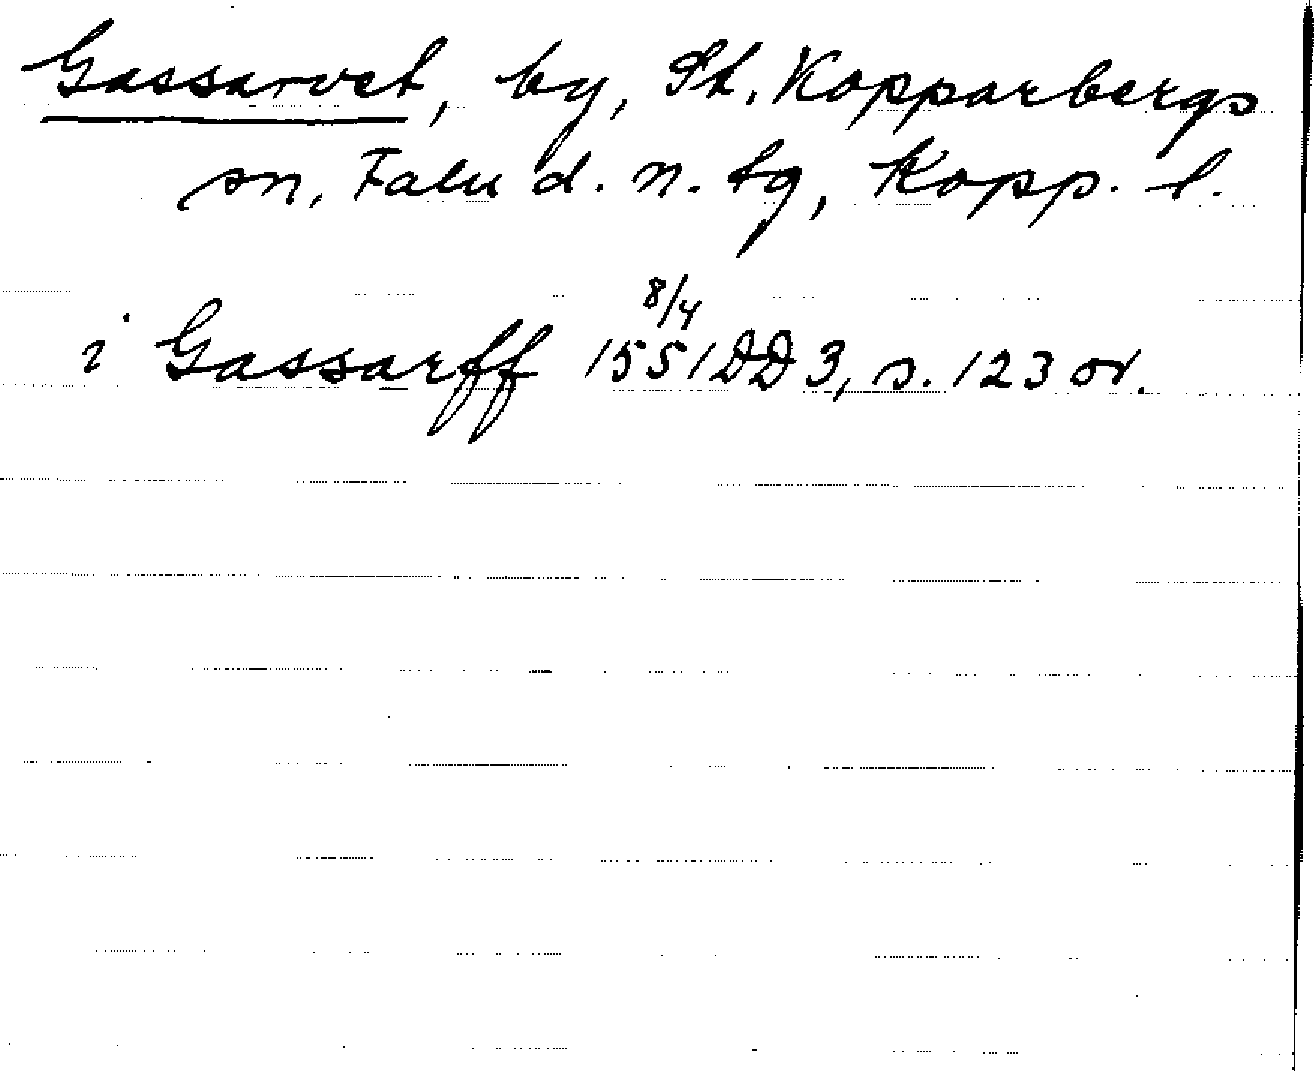 Gassarvet, by, St. Kopparbergs
sn, Falu d. n. tg, Kopp. l.
8/4
i Gassarff 1551 DD 3, s. 123 or.